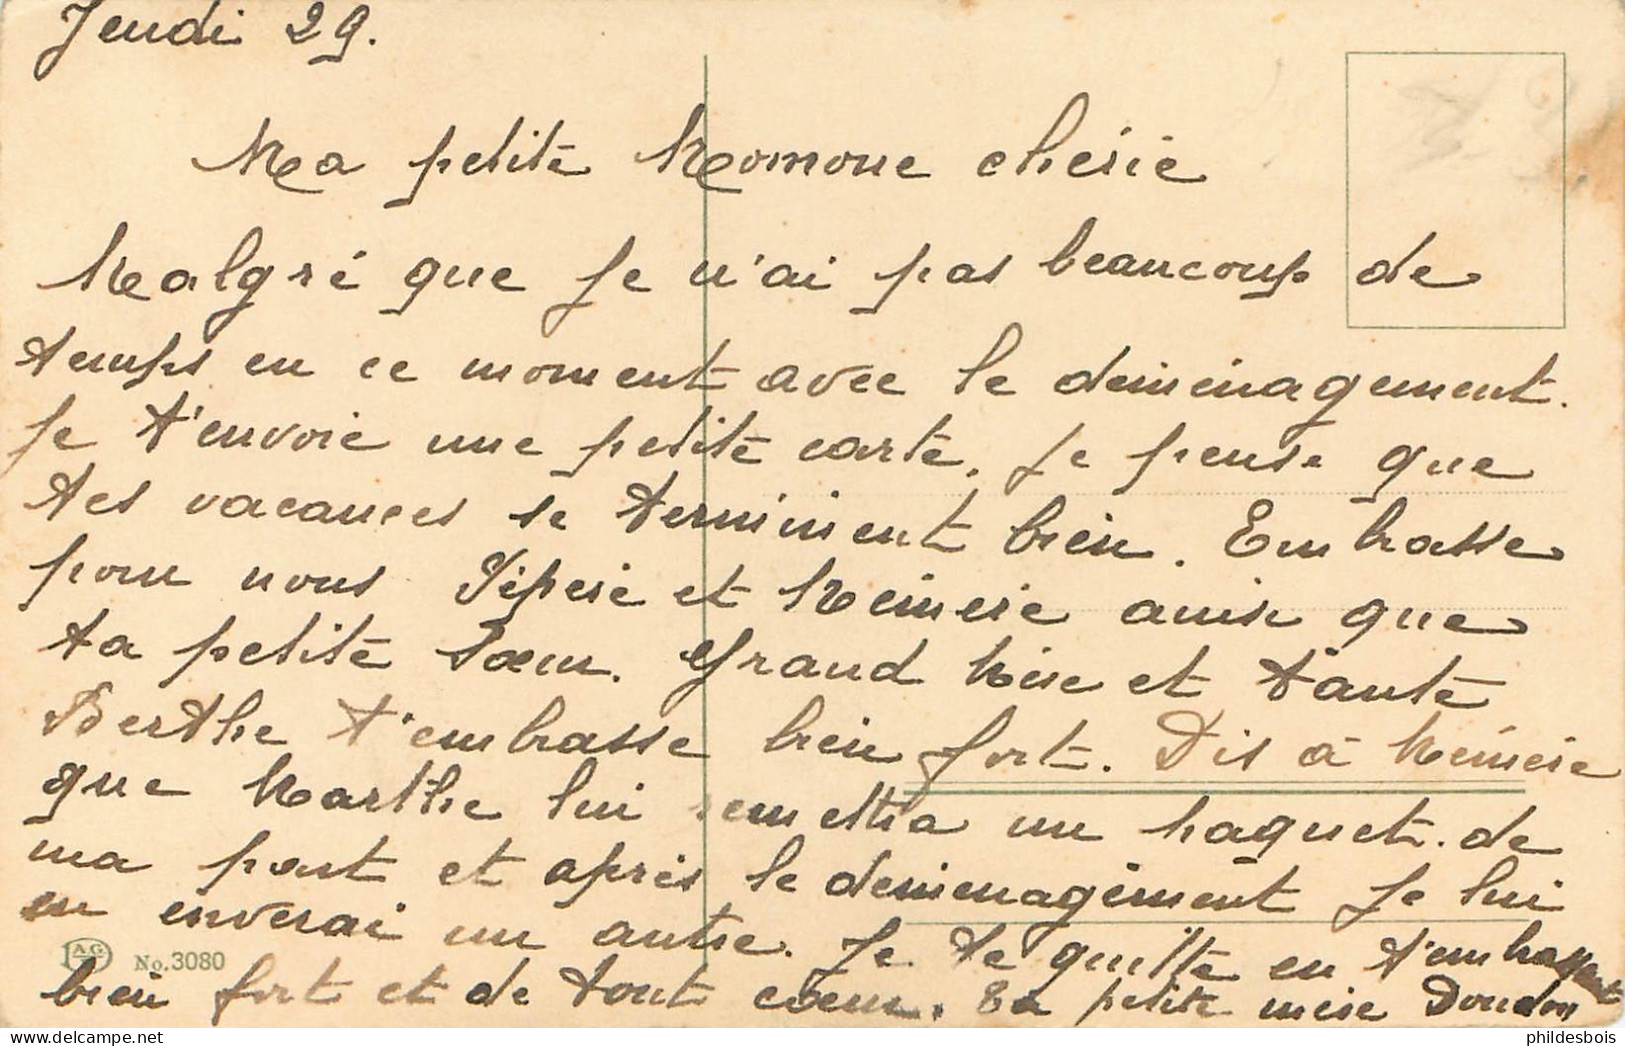 Jeudi 29.
Ma petite Momone chérie
Malgré que je n'ai pas beaucoup de
temps en ce moment avec le déménagement.
Je t'envoie une petite carte. Je pense que
tes vacances se terminent bien. Embrasse
pour nous Pépère et Mémère ainsi que
ta petite Sœur. Grand Mère et tante
Berthe t'embrasse bien fort. Dis à Mémère
que Marthe lui remettra un paquet. de
ma part et après le déménagement je lui
en enverai un autre. Je te quitte en t'embrassant
bien fort et de tout cœur. Ta petite mère Doudou
AG No. 3080
phildesbois